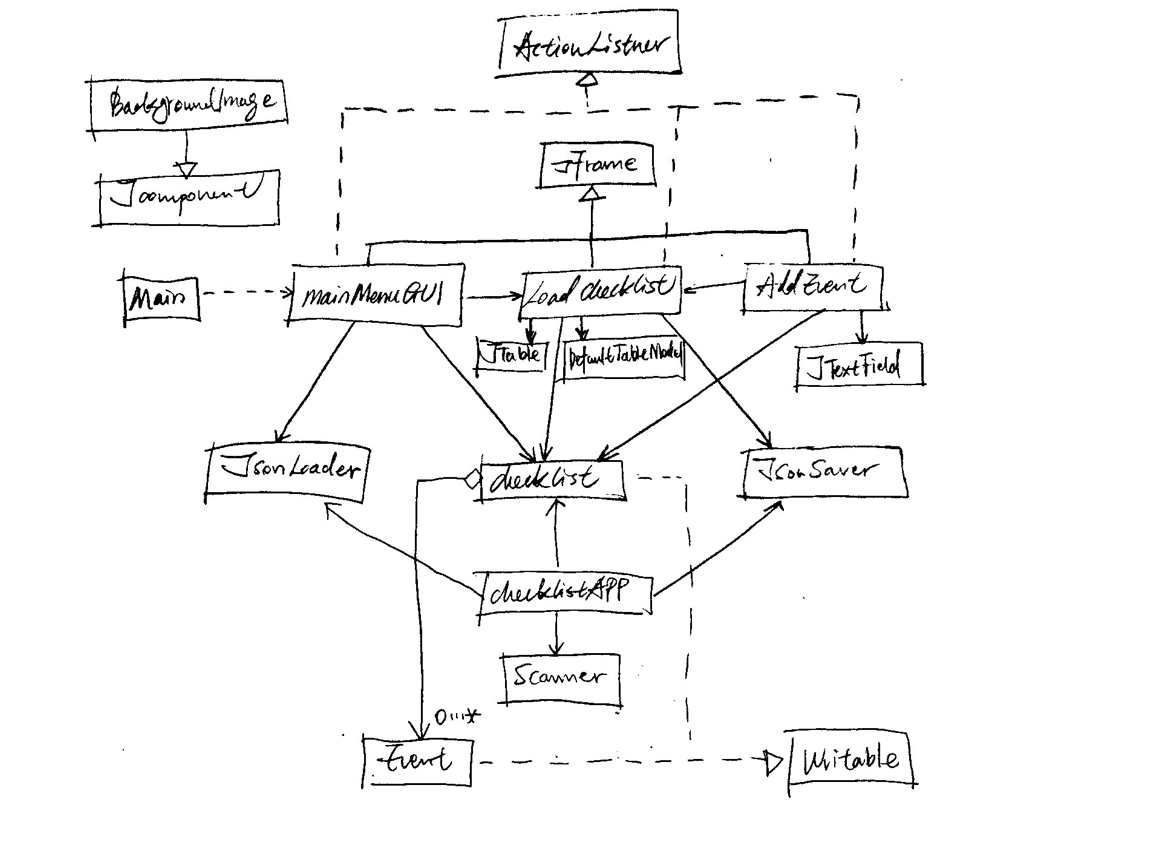 ActionListner
BackgroundImage
JFrame
Jcomponent
Main
mainMenuGUI
Load checklist
AddEvent
JTable
DefaultTableModel
JTextField
JsonLoader
checklist
JsonSaver
checklistAPP
Scanner
0...*
Event
Writable